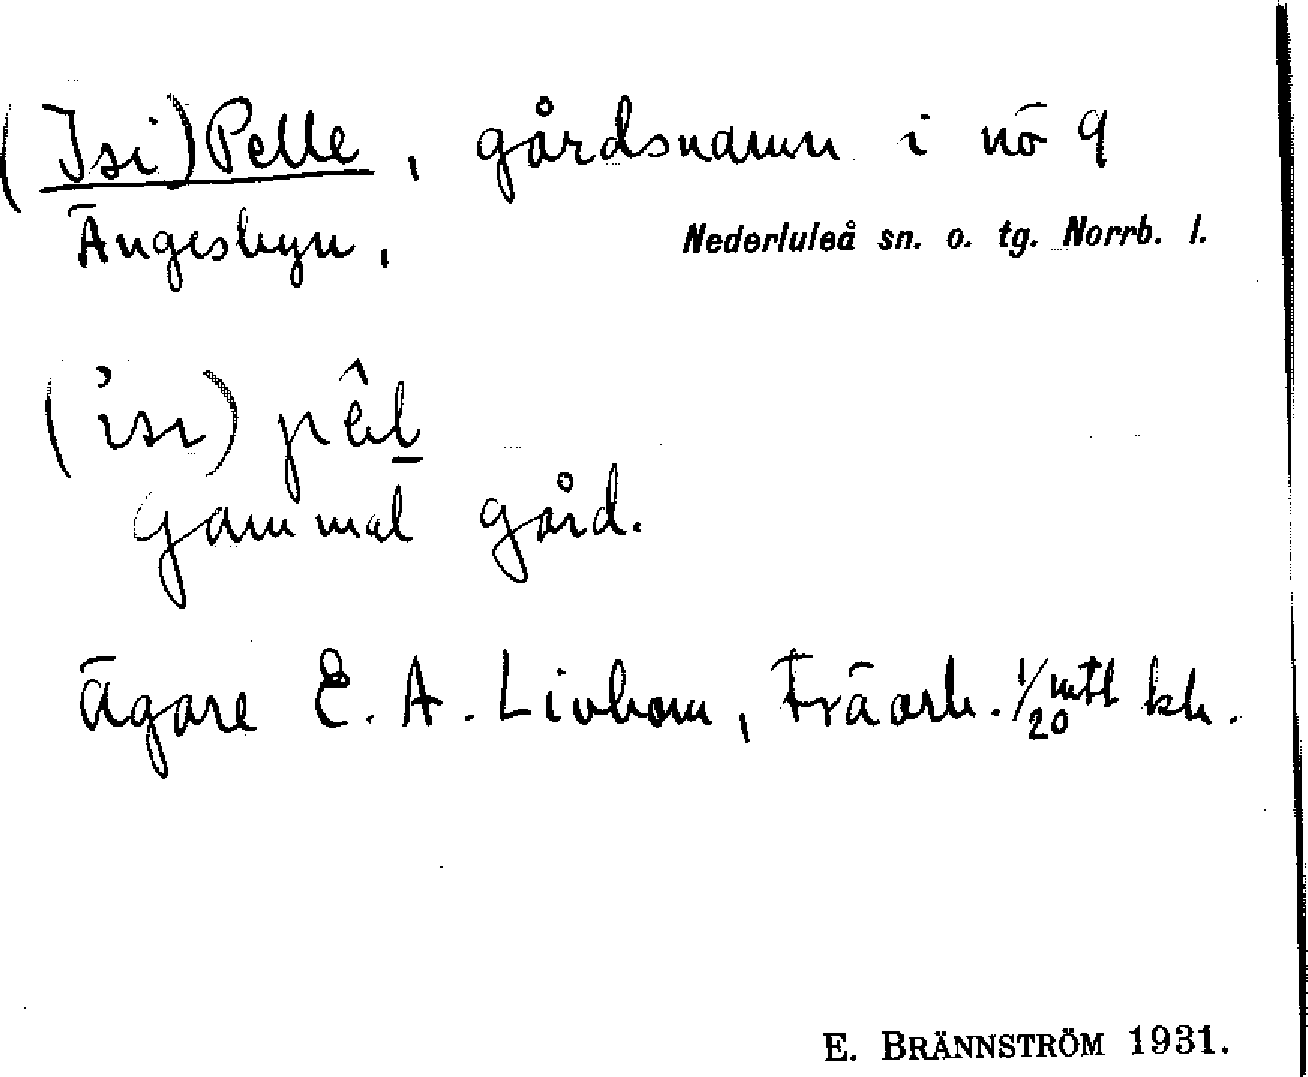 (Isi) Pelle, gårdsnamn i nö 9
Ängesbyn,
Nederluleå sn. o. tg. Norrb. l.
gammal gård.
Ägare E. A. Livbom, Fräarb. 1/20 mtl kr.
E. BRÄNNSTRÖM 1931.